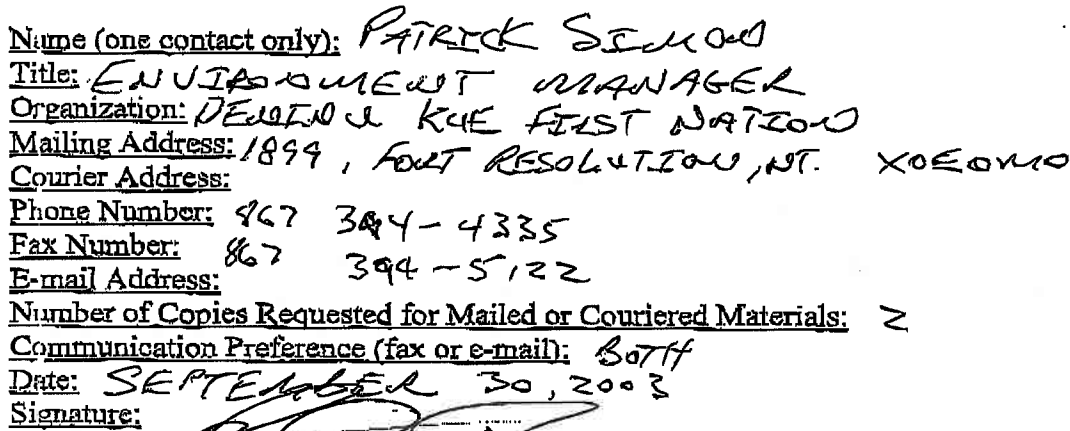 Name (one contact only): PATRICK SIMON
Title: ENVIRONMENT MANAGER
Organization: DENINU KUE FIRST NATION
Mailing Address: 1899, FORT RESOLUTION, NT. X0E0M0
Courier Address:
Phone Number: 867 394-4335
Fax Number: 867 394-5122
E-mail Address:
Number of Copies Requested for Mailed or Couriered Materials: 2
Communication Preference (fax or e-mail): BOTH
Date: SEPTEMBER 30, 2003
Signature: